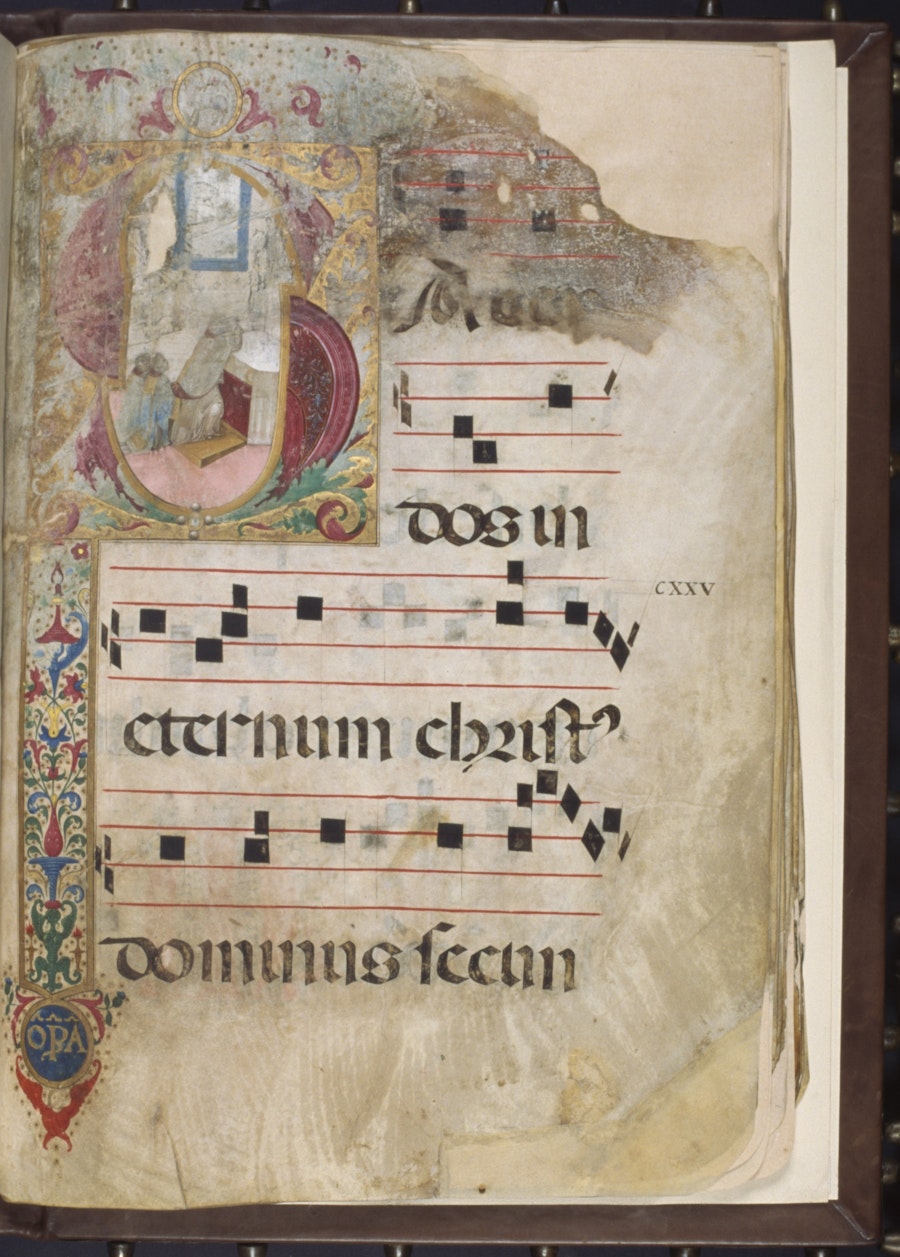 SAcer
dos in
CXXV
eternum christꝰ
dominus secun
OPA